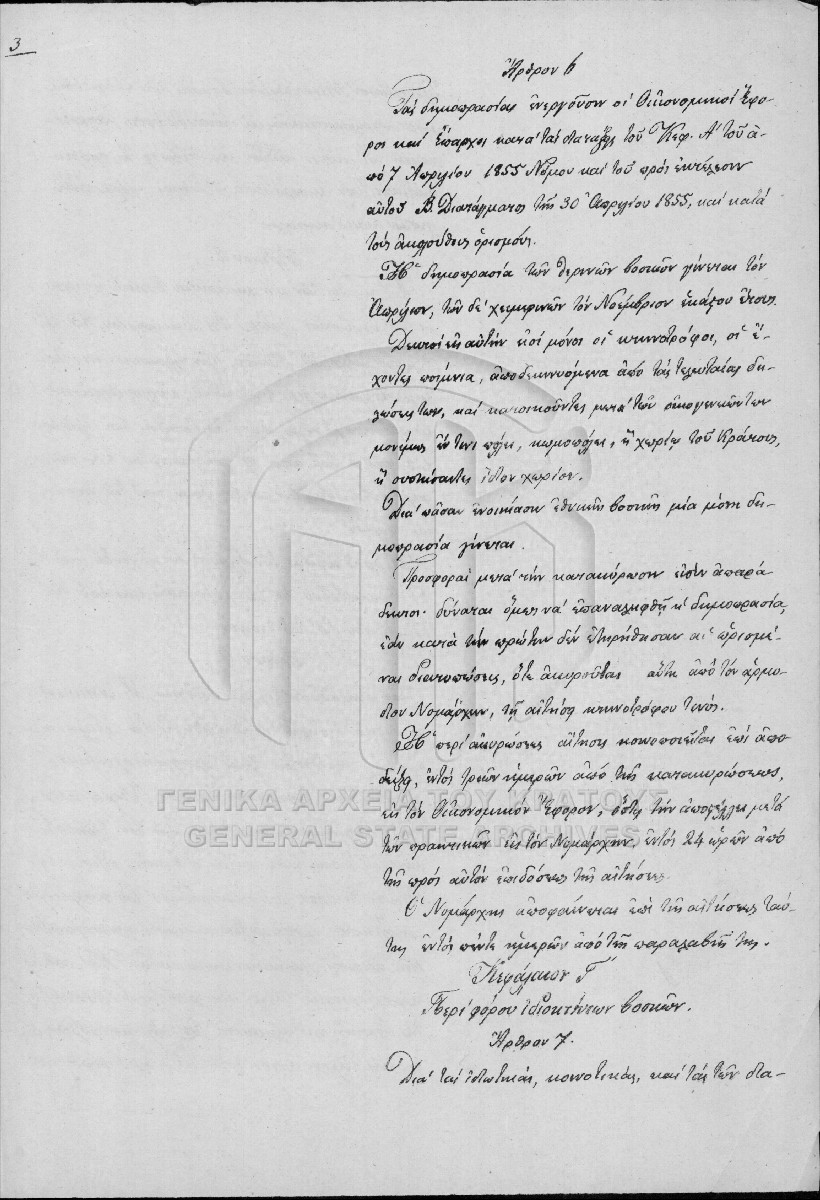 3
Ἄρθρον 6
Τὰς δημοπρασίας ἐνεργοῦσιν οἱ Οἰκονομικοὶ Ἔφο-
ροι καὶ Ἔπαρχοι κατὰ τὰς διατάξεις τοῦ Κεφ. Α' τοῦ ἀ-
πό 7 Ἀπριλίου 1855 Νόμου καὶ τοῦ πρὸς ἐκτέλεσιν
αὐτοῦ Β. Διατάγματος τῆς 30 Ἀπριλίου 1855, καὶ κατὰ
τοὺς ἀκολούθους ὁρισμούς.
Ἡ δημοπρασία τῶν θερινῶν βοσκῶν γίνεται τὸν
Ἀπρίλιον, τῶν δὲ χειμερινῶν τὸν Νοέμβριον ἑκάστου ἔτους.
Δεκτοὶ εἰς αὐτὴν εἰσί μόνοι οἱ κτηνοτρόφοι, οἱ ἔ-
χοντες ποίμνια, ἀποδεικνυόμενα ἀπὸ τὰς τελευταίας δη-
λώσεις των, καὶ κατοικοῦντες μετὰ τῶν οἰκογενειῶν των
μονίμως ἔν τινι πόλει, κωμοπόλει, ἢ χωρίῳ τοῦ Κράτους,
ἢ συστήσαντες ἴδιον χωρίον.
Διὰ πᾶσαν ἐνοικίασιν ἐθνικῆς βοσκῆς μία μόνη δη-
μοπρασία γίνεται.
Προσφοραὶ μετὰ τὴν κατακύρωσιν εἰσὶν ἀπαρά
δεκτοι· δύναται ὅμως νὰ ἐπαναληφθῇ ἡ δημοπρασία,
ἐὰν κατὰ τὴν πρώτην δὲν ἐτηρήθησαν αἱ ὡρισμέ-
ναι διατυπώσεις, ὅτε ἀκυροῦται αὕτη ἀπὸ τὸν ἁρμό-
διον Νομάρχην, τῇ αἰτήσει κτηνοτρόφου τινός.
Ἡ περὶ ἀκυρώσεως αἴτησις κοινοποιεῖται ἐπὶ ἀπο-
δείξει, ἐντὸς τριῶν ἡμερῶν ἀπὸ τῆς κατακυρώσεως,
εἰς τὸν Οἰκονομικὸν Ἔφορον, ὅστις τὴν ἀποστέλλει μετὰ
τῶν πρακτικῶν εἰς τὸν Νομάρχην, ἐντὸς 24 ὡρῶν ἀπὸ
τῆς πρὸς αὐτὸν ἐπιδόσεως τῆς αἰτήσεως.
Ὁ Νομάρχης ἀποφαίνεται ἐπὶ τῆς αἰτήσεως ταύ-
της ἐντὸς πέντε ἡμερῶν ἀπὸ τῆς παραλαβῆς της.
Κεφάλαιον Γ'
Περὶ φόρου ἰδιοκτήτων βοσκῶν.
Ἄρθρον 7.
Διὰ τὰς ἰδιωτικὰς, κοινοτικὰς, καὶ τὰς τῶν δια-
ΓΕΝΙΚΑ ΑΡΧΕΙΑ ΤΟΥ ΚΡΑΤΟΥΣ
GENERAL STATE ARCHIVES